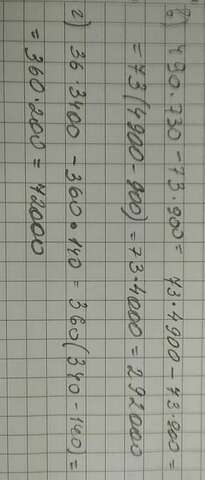 б) 490·730 - 73·900 = 73·4900 - 73·900 =
= 73(4900 - 900) = 73·4000 = 292000
г) 36·3400 - 360·140 = 360(340 - 140) =
= 360·200 = 72000